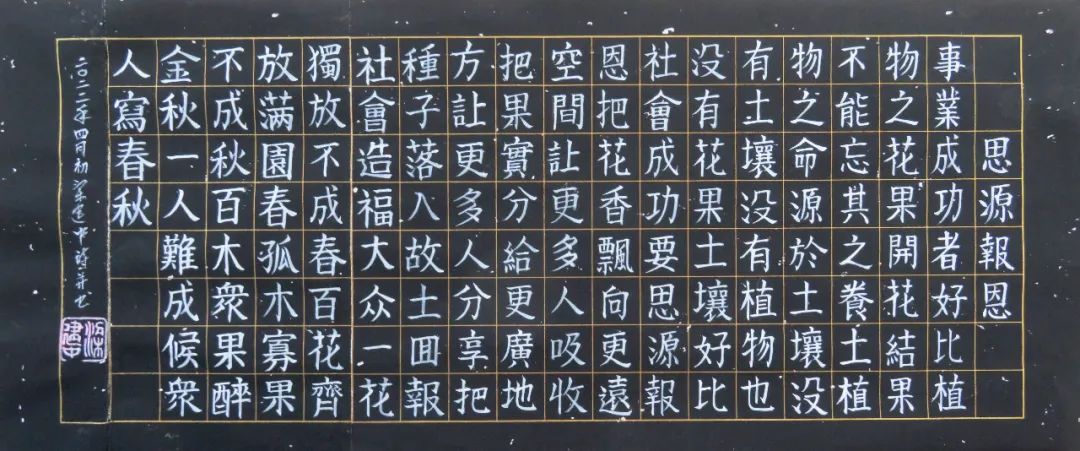 思源報恩
事業成功者好比植
物之花果開花結果
不能忘其之養土植
物之命源於土壤没
有土壤没有植物也
没有花果土壤好比
社會成功要思源報
恩把花香飄向更遠
空間让更多人吸收
把果實分給更廣地
方让更多人分享把
種子落入故土囬報
社會造福大众一花
獨放不成春百花齊
放满園春孤木寡果
不成秋百木衆果醉
金秋一人難成候衆
人寫春秋
二〇二二年四月初建中詩并书